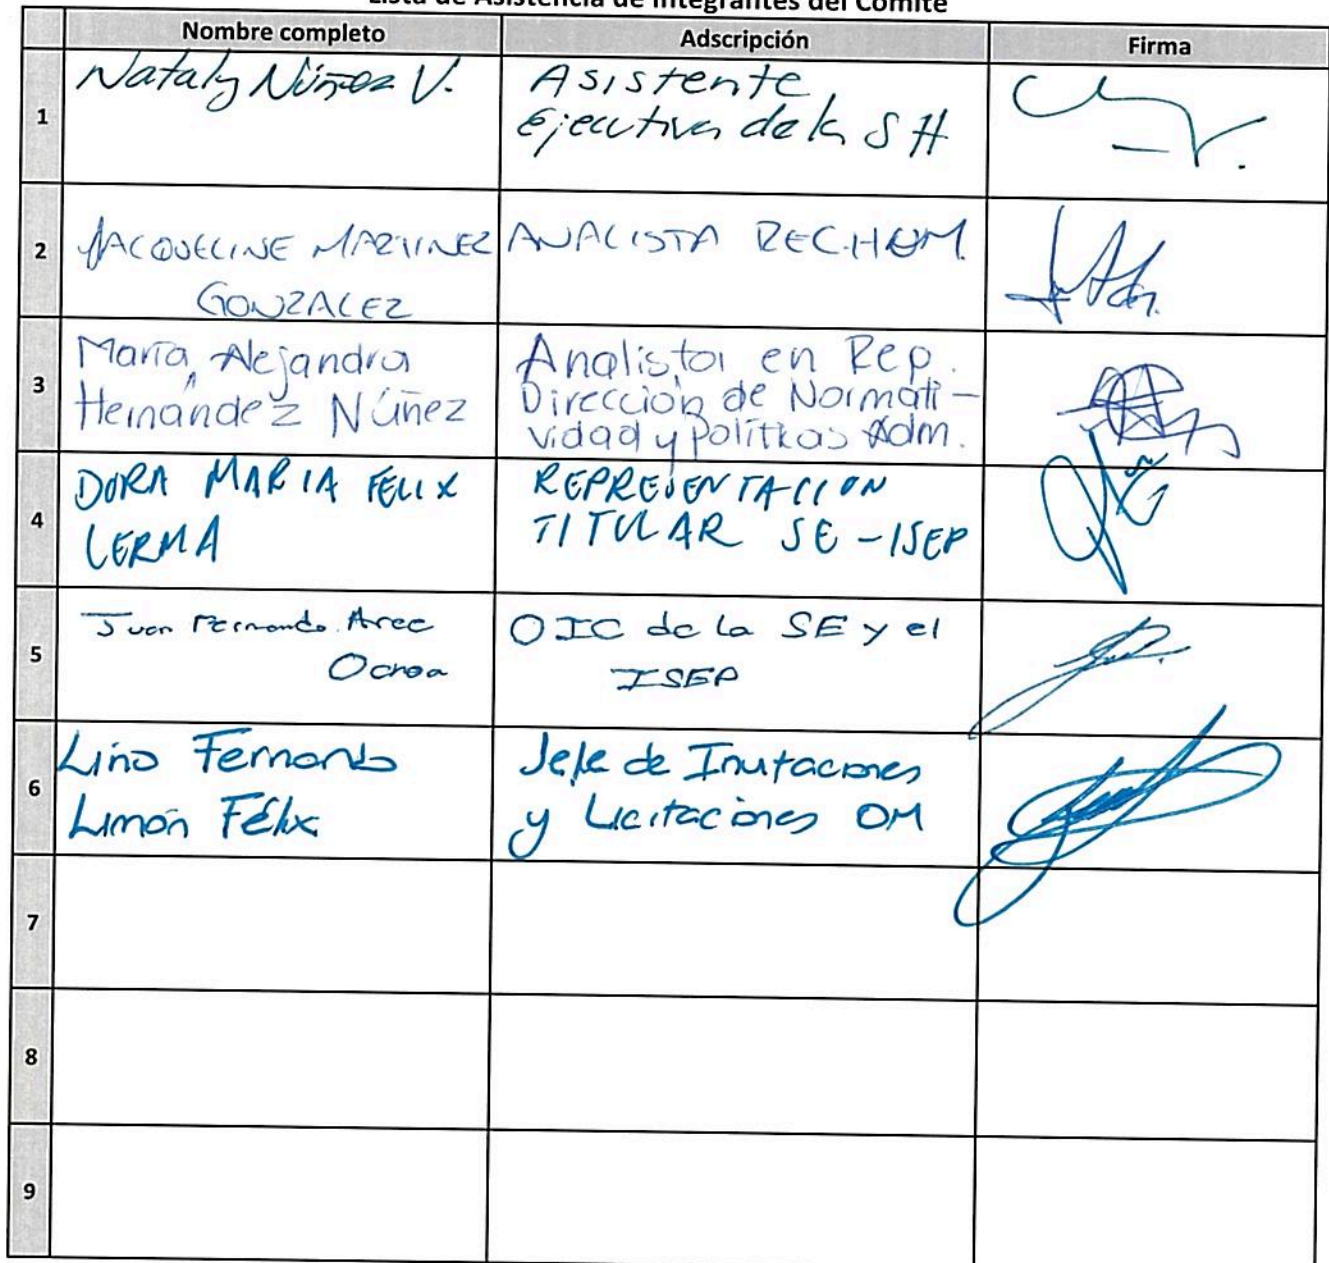 Lista de Asistencia de Integrantes del Comité
Nombre completo Adscripción Firma
1
Nataly Núñez V.
Asistente
Ejecutiva de la SH
2
JACQUELINE MARTINEZ
GONZALEZ
ANALISTA REC.HUM.
3
María Alejandra
Hernández Núñez
Analista en Rep.
Dirección de Normati-
vidad y Políticas Adm.
4
DORA MARIA FELIX
LERMA
REPRESENTACION
TITULAR SE-ISEP
5
Juan Fernando Arce
Ochoa
OIC de la SE y el
ISEP
6
Lino Fernando
Limón Félix
Jefe de Invitaciones
y Licitaciones OM
7
8
9